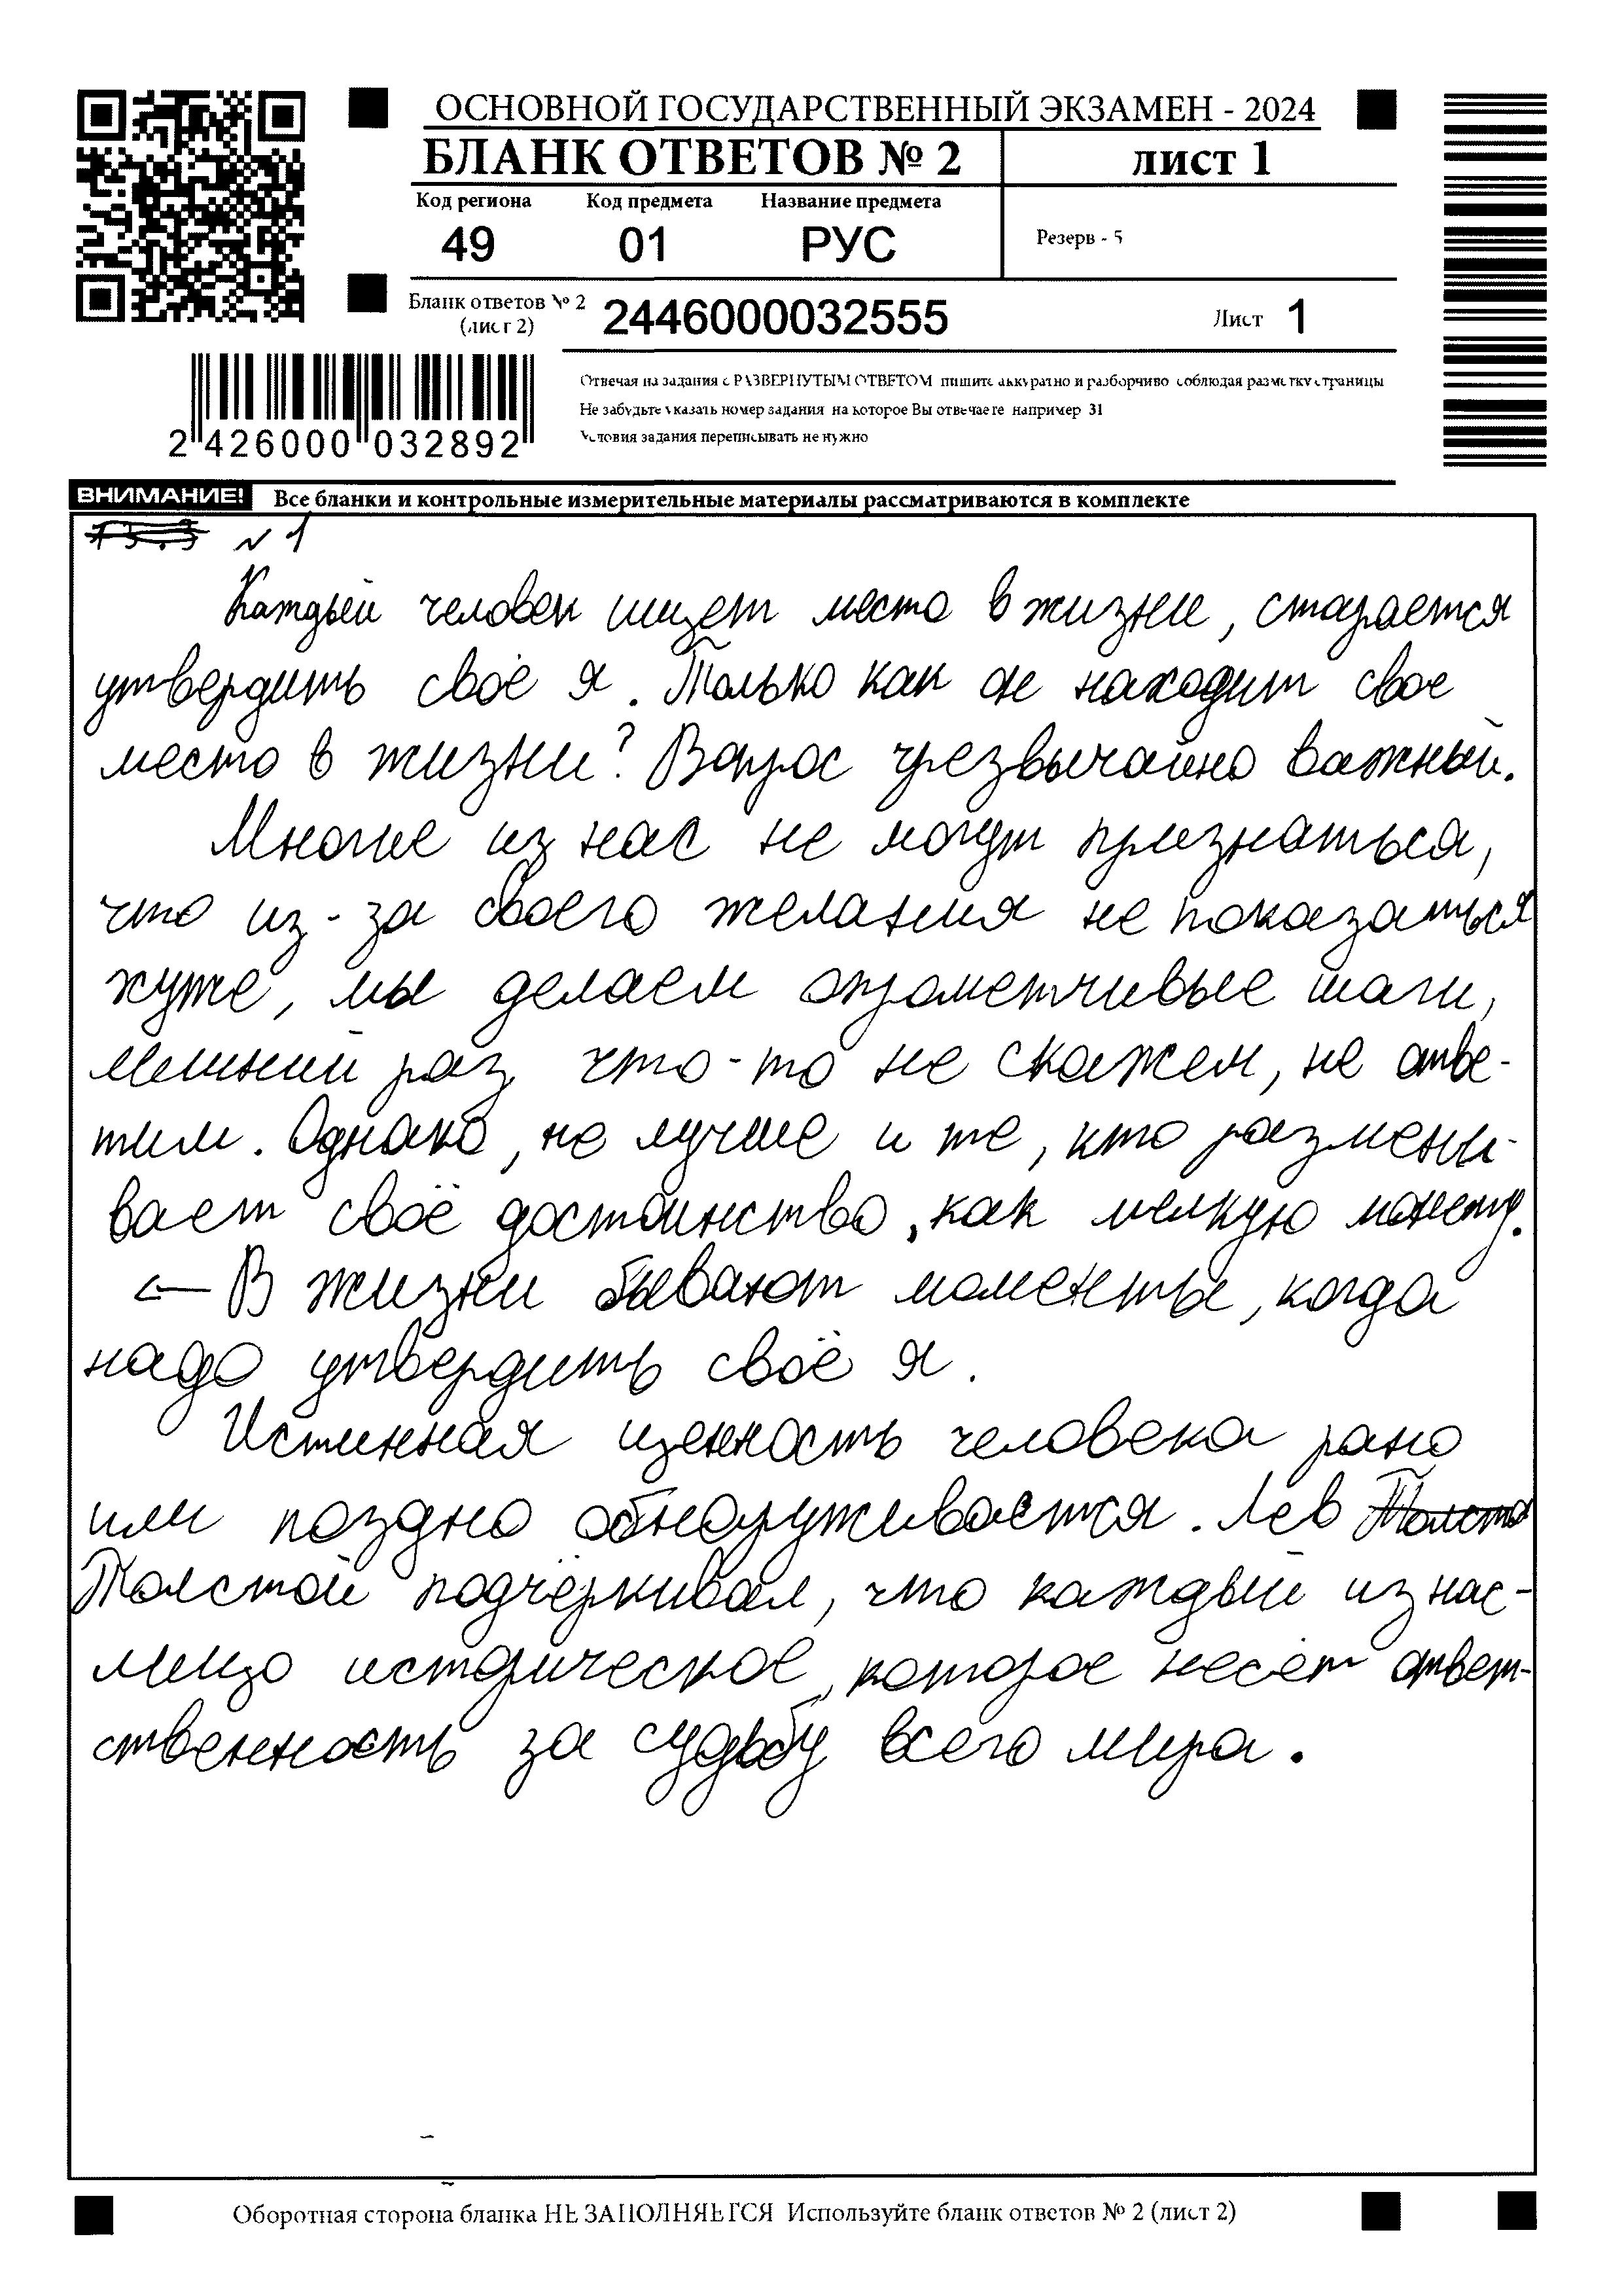 ОСНОВНОЙ ГОСУДАРСТВЕННЫЙ ЭКЗАМЕН - 2024
БЛАНК ОТВЕТОВ № 2
лист 1
Код региона Код предмета Название предмета
49 01 РУС
Резерв - 5
Бланк ответов № 2
(лист 2)
2446000032555
Лист 1
Отвечая на задания с РАЗВЕРНУТЫМ ОТВЕТОМ пишите аккуратно и разборчиво соблюдая разметку страницы
Не забудьте указать номер задания на которое Вы отвечаете например 31
Условия задания переписывать не нужно
2 426000 032892
ВНИМАНИЕ! Все бланки и контрольные измерительные материалы рассматриваются в комплекте
13.3 №1
Каждый человек ищет место в жизни, старается
утвердить своё я. Только как он не находит свое
место в жизни? Вопрос чрезвычайно важный.
Многие из нас не могут признаться,
что из-за своего желания не показаться
хуже, мы делаем опрометчивые шаги,
лишний раз что-то не скажем, не отве-
тим. Однако, не лучше и те, кто размени-
вает своё достоинство, как мелкую монету.
В жизни бывают моменты, когда
надо утвердить своё я.
Истинная ценность человека рано
или поздно обнаруживается. Лев Толсто
Толстой подчёркивал, что каждый из нас-
лицо историческое, которое несёт ответ-
ственность за судьбу всего мира.
Оборотная сторона бланка НЕ ЗАПОЛНЯЕТСЯ Используйте бланк ответов № 2 (лист 2)